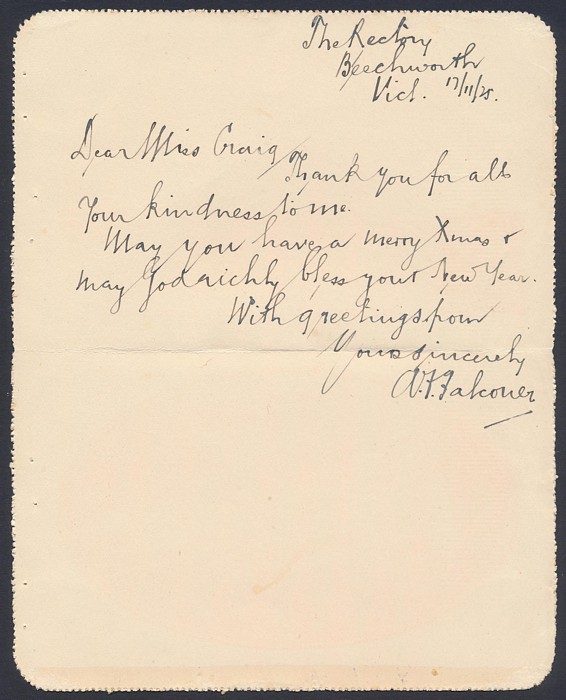 The Rectory
Beechworth
Vict. 17/11/25.
Dear Miss Craig
Thank you for all
Your kindness to me.
May you have a merry Xmas &
may God richly bless your New Year.
With greetings from
Yours sincerely
A.F. Falconer